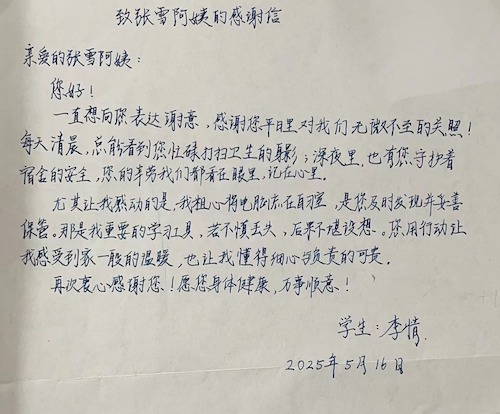 致张雪阿姨的感谢信
亲爱的张雪阿姨：
您好！
一直想向您表达谢意，感谢您平日里对我们无微不至的关照！
每天清晨，总能看到您忙碌打扫卫生的身影；深夜里，也有您守护着
宿舍的安全，您的辛劳我们都看在眼里，记在心里。
尤其让我感动的是，我粗心将电脑忘在自习室，是您及时发现并妥善
保管。那是我重要的学习工具，若不慎丢失，后果不堪设想。您用行动让
我感受到家一般的温暖，也让我懂得细心与负责的可贵。
再次衷心感谢您！愿您身体健康，万事顺意！
学生：李情
2025年5月16日